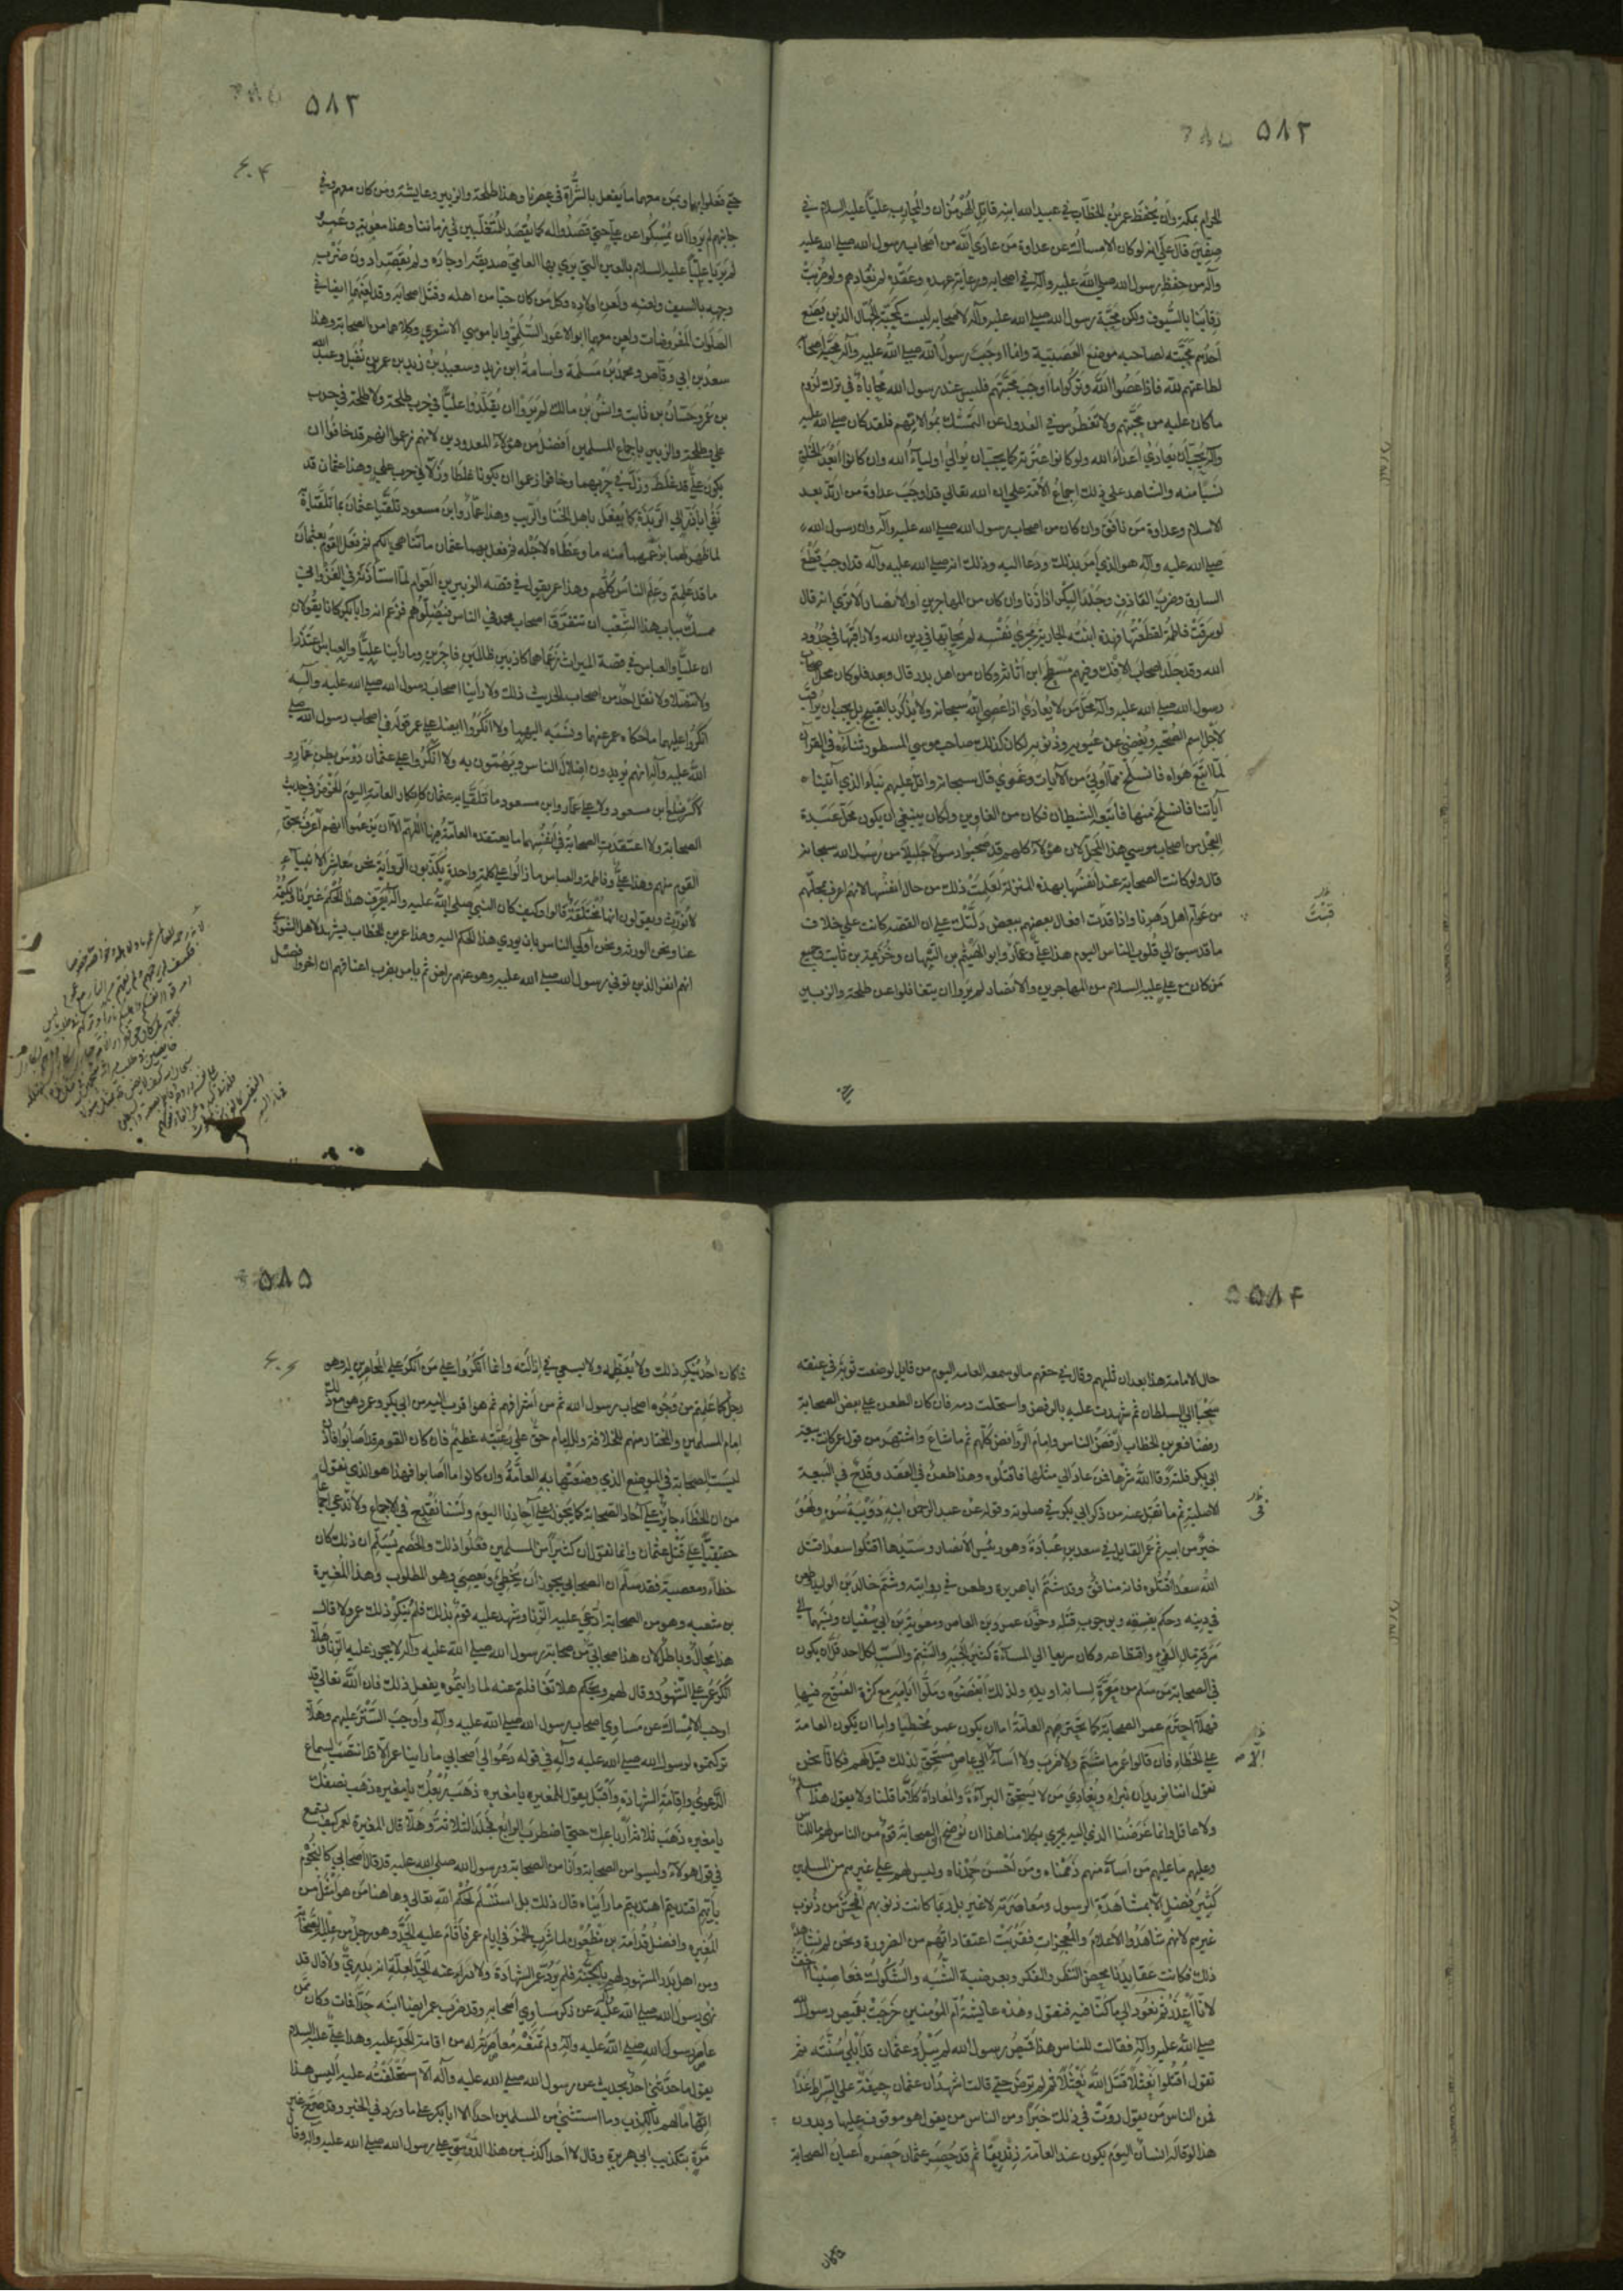 ۵۸۲
الحرام بمكة وان يحفظ عمر بن الخطاب في عبيد الله ابنه قاتل الهرمزان والمحارب عليا عليه السلام في
صفين قال علي انه لو كان الامساك عن عداوة من عادى الله من اصحاب رسول الله صلى الله عليه
وآله من حفظ رسول الله صلى الله عليه وآله في اصحابه ورعاية عهده وعقده لم نعادهم ولو ضربت
رقابنا بالسيوف ولكن محبة رسول الله صلى الله عليه وآله لاصحابه ليست كمحبة الجهال الذين يصنع
احدهم محبته لصاحبه موضع العصبية وانما اوجب رسول الله صلى الله عليه وآله محبة اصحابه
لطاعتهم لله فاذا عصوا الله وتركوا ما اوجب محبتهم فليس عند رسول الله محاباة في ترك لزوم
ما كان عليه من محبتهم ولا تغطرس في العدول عن التمسك بموالاتهم فلقد كان صلى الله عليه
وآله يحب ان يعادي اعداء الله ولو كانوا عترته كما يحب ان يوالي اولياء الله وان كانوا ابعد الخلق
نسبا منه والشاهد على ذلك اجماع الامة على ان الله تعالى قد اوجب عداوة من ارتد بعد
الاسلام وعداوة من نافق وان كان من اصحاب رسول الله صلى الله عليه وآله وان رسول الله
صلى الله عليه وآله هو الذي امر بذلك ودعا اليه وذلك انه صلى الله عليه وآله قد اوجب قطع
السارق وضرب القاذف وجلد البكر اذا زنا وان كان من المهاجرين او الانصار الا ترى انه قال
لو سرقت فاطمة لقطعتها فهذه ابنته الجارية مجرى نفسه لم يحابها في دين الله ولا راقبها في حدود
الله وقد جلد اصحاب الافك ومنهم مسطح ابن اثاثة وكان من اهل بدر قال وبعد فلو كان محل اصحاب
رسول الله صلى الله عليه وآله محل من لا يعادى اذا عصى الله سبحانه ولا يذكر بالقبيح بل يجب ان يراقب
لاجل اسم الصحبة ويغضى عن عيوبه وذنوبه لكان كذلك صاحب موسى المسطور ثناؤه في القرآن
لما اتبع هواه فانسلخ مما اوتي من الآيات وغوى قال سبحانه واتل عليهم نبأ الذي آتيناه
آياتنا فانسلخ منها فاتبعه الشيطان فكان من الغاوين ولكان ينبغي ان يكون محل عبدة
العجل من اصحاب موسى هذا المحل لان هؤلاء كلهم قد صحبوا رسولا جليلا من رسل الله سبحانه
قال ولو كانت الصحابة عند انفسها بهذه المنزلة لعلمت ذلك من حال انفسها لانهم اعرف بمحلهم
من عوام اهل دهرنا واذا قدرت افعال بعضهم ببعض دلتك على ان القصة كانت على خلاف
ما قد سبق الى قلوب الناس اليوم هذا علي وعمار وابو الهيثم بن التيهان وخزيمة بن ثابت وجميع
من كان مع علي عليه السلام من المهاجرين والانصار لم يروا ان يتغافلوا عن طلحة والزبير
۵۸۳
حتى فعلوا بهما وبمن معهما ما يفعل بالشراة في عصرنا وهذا طلحة والزبير وعايشة ومن كان معهم وفي
جانبهم لم يروا ان يمسكوا عن علي حتى قصدوا له كما يقصد للمتغلبين في زماننا وهذا معوية وعمرو
لم يريا عليا عليه السلام بالعين التي يرى بها العامي صديقه او جاره ولم يقصرا دون ضرب
وجهه بالسيف ولعنه ولعن اولاده وكل من كان حيا من اهله وقتل اصحابه وقد لعنهما ايضا في
الصلوات المفروضات ولعن معهما ابو الاعور السلمي وابا موسى الاشعري وكلاهما من الصحابة وهذا
سعد بن ابي وقاص ومحمد بن مسلمة واسامة ابن زيد وسعيد بن زيد بن عمرو بن نفيل وعبد الله
بن عمر وحسان بن ثابت وانس بن مالك لم يروا ان يقلدوا عليا في حرب طلحة ولا طلحة في حرب
علي وطلحة والزبير باجماع المسلمين افضل من هؤلاء المعدودين لانهم زعموا انهم قد خافوا ان
يكون علي قد غلط وزل في حربهما وخافوا زعموا ان يكونا غلطا وزلا في حرب علي وهذا عثمان قد
نفى ابا ذر الى الربذة كما يفعل باهل الخنا والريب وهذا عمار وابن مسعود تلقيا عثمان بما تلقياه
لما ظهر لهما بزعمهما منه ما وعظاه لاجله ثم فعل بهما عثمان ما تناهى اليكم ثم فعل القوم بعثمان
ما قد علمتم وعلم الناس كلهم وهذا عمر يقول في قصة الزبير بن العوام لما استأذنه في الغزو
ممسك بباب هذا الشعب ان تتفرق اصحاب محمد في الناس فيضلوهم وزعم انه وابا بكر كانا يقولان
ان عليا والعباس في قصة الميراث زعماهما كاذبين ظالمين فاجرين وما رأينا عليا والعباس اعتذرا
ولا تنصلا ولا نقل احد من اصحاب الحديث ذلك ولا رأينا اصحاب رسول الله صلى الله عليه وآله
انكروا عليهما ما حكاه عمر عنهما ونسبه اليهما ولا انكروا ايضا على عمر قوله في اصحاب رسول الله صلى
الله عليه وآله انهم يريدون اضلال الناس ويهمون به ولا انكروا على عثمان دوس بطن عمار ولا
كسر ضلع ابن مسعود ولا على عمار وابن مسعود ما تلقيا به عثمان كانكار العامة اليوم الخوض في حديث
الصحابة ولا اعتقدت الصحابة في انفسها ما يعتقده العامة فيها اللهم الا ان يزعموا انهم اعرف بحق
القوم منهم وهذا علي وفاطمة والعباس ما زالوا على كلمة واحدة يكذبون الرواية نحن معاشر الانبياء
لا نورث ويقولون انها مختلقة قالوا وكيف كان النبي صلى الله عليه وآله يعرف هذا الحكم غيرنا ويكتمه
عنا ونحن الورثة ونحن اولى الناس بان يودى هذا الحكم اليه وهذا عمر بن الخطاب يشهد لاهل الشورى
انهم النفر الذين توفي رسول الله صلى الله عليه وهو عنهم راض ثم يأمر بضرب اعناقهم ان اخروا فصل
۵۸۴
حال الامامة هذا بعد ان ثلبهم وقال في حقهم ما لو سمعه العامة اليوم من قايل لوضعت ثوبه في عنقه
سحبا الى السلطان ثم شهدت عليه بالرفض واستحلت دمه فان كان الطعن على بعض الصحابة
رفضا فعمر بن الخطاب ارفض الناس وامام الروافض كلهم ثم ما شاع واشتهر من قول عمر كانت بيعة
ابي بكر فلتة وقا الله شرها فمن عاد الى مثلها فاقتلوه وهذا طعن في العقد وقدح في البيعة
الاصلية ثم ما نقل عنه من ذكر ابي بكر في صلوته وقوله عن عبد الرحمن ابنه دويبة سوء ولهو
خير من ابيه ثم عمر القايل في سعد بن عبادة وهو رئيس الانصار وسيدها اقتلوا سعدا قتل
الله سعدا اقتلوه فانه منافق وقد شتم ابا هريرة وطعن في روايته وشتم خالد بن الوليد وطعن
في دينه وحكم بفسقه وبوجوب قتله وخون عمرو بن العاص ومعوية بن ابي سفيان ونسبهما الى
سرقة مال الفيء واقتطاعه وكان سريعا الى المساءة كثير الجبه والشتم والسب لكل احد قل ان يكون
في الصحابة من سلم من معرة لسانه او يده ولذلك ابغضوه وملوا ايامه مع كثرة الفتوح فيها
فهلا احترم عمر الصحابة كما تحترمهم العامة اما ان يكون عمر مخطيا واما ان تكون العامة
على الخطاء فان قالوا عمر ما شتم ولا ضرب ولا اساء الا الى عاص مستحق لذلك قيل لهم فكانا نحن
نقول اننا نريد ان نبراء ونعادي من لا يستحق البراءة والمعاداة كلا ما قلنا ولا يقول هذا مسلم
ولا عاقل وانما غرضنا الذي اليه يجري بكلامنا هذا ان نوضح ان الصحابة قوم من الناس لهم ما للناس
وعليهم ما عليهم من اساء منهم ذممناه ومن احسن حمدناه وليس لهم على غيرهم من المسلمين
كثير فضل الا بمشاهدة الرسول ومعاصرته لا غير بل ربما كانت ذنوبهم افحش من ذنوب
غيرهم لانهم شاهدوا الاعلام والمعجزات فقربت اعتقاداتهم من الضرورة ونحن لم نشاهد
ذلك فكانت عقايدنا محض النظر والفكر وبعرضية الشبه والشكوك فمعاصينا اخف
لانا اعذر ثم نعود الى ما كنا فيه فنقول وهذه عايشة ام المؤمنين خرجت بقميص رسول الله
صلى الله عليه وآله فقالت للناس هذا قميص رسول الله لم يبل وعثمان قد ابلى سنته ثم
تقول اقتلوا نعثلا قتل الله نعثلا ثم لم ترض حتى قالت اشهد ان عثمان جيفة على الصراط غدا
فمن الناس من يقول روت في ذلك خبرا ومن الناس من يقول هو موقوف عليها وبدون
هذا لو قاله انسان اليوم يكون عند العامة زنديقا ثم قد حصر عثمان حصره اعيان الصحابة
فما كان
۵۸۵
فما كان احد ينكر ذلك ولا يعظمه ولا يسعى في ازالته وانما انكروا على من انكر على المحاصرين له وهو
رجل كما علمتم من وجوه اصحاب رسول الله ثم من اشرافهم ثم هو اقرب اليه من ابي بكر وعمر وهو مع ذلك
امام المسلمين والمختار منهم للخلافة وللامام حق على رعيته عظيم فان كان القوم قد اصابوا فاذن
ليست الصحابة في الموضع الذي وضعتها به العامة وان كانوا ما اصابوا فهذا هو الذي نقول
من ان الخطاء جايز على آحاد الصحابة كما يجوز على آحادنا اليوم ولسنا نقدح في الاجماع ولا ندعي اجماعا
حقيقيا على قتل عثمان وانما نقول ان كثيرا من المسلمين فعلوا ذلك والخصم يسلم ان ذلك كان
خطاء ومعصية فقد سلم ان الصحابي يجوز ان يخطئ ويعصي وهو المطلوب وهذا المغيرة
بن شعبة وهو من الصحابة ادعي عليه الزنا وشهد عليه قوم بذلك فلم ينكر ذلك عمر ولا قال
هذا محال وباطل لان هذا صحابي من صحابة رسول الله صلى الله عليه وآله لا يجوز عليه الزنا وهلا
انكر عمر على الشهود وقال لهم ويحكم هلا تغافلتم عنه لما رايتموه يفعل ذلك فان الله تعالى قد
اوجب الامساك عن مساوي اصحاب رسول الله صلى الله عليه وآله واوجب الستر عليهم وهلا
تركتموه لرسول الله صلى الله عليه وآله في قوله دعوا لي اصحابي ما راينا عمر الا قد انتصب لسماع
الدعوى واقامة الشهادة واقبل يقول للمغيرة يا مغيرة ذهب ربعك يا مغيرة ذهب نصفك
يا مغيرة ذهب ثلاثة ارباعك حتى اضطرب الرابع فجلد الثلاثة وهلا قال المغيرة لعمر كيف تسمع
في قول هؤلاء وليسوا من الصحابة وانا من الصحابة ورسول الله صلى الله عليه قد قال اصحابي كالنجوم
بايهم اقتديتم اهتديتم ما رأيناه قال ذلك بل استسلم لحكم الله تعالى وهاهنا من هو امثل من
المغيرة وافضل قدامة بن مظعون لما شرب الخمر في ايام عمر فاقام عليه الحد وهو رجل من علية الصحابة
ومن اهل بدر المشهود لهم بالجنة فلم يرد عمر الشهادة ولا درأ عنه الحد لعلة انه بدري ولا قال قد
نهى رسول الله صلى الله عليه عن ذكر مساوي اصحابه وقد ضرب عمر ايضا ابنه حدا فمات وكان ممن
عاصر رسول الله صلى الله عليه وآله ولم تمنعه معاصرته له من اقامة الحد عليه وهذا علي عليه السلام
يقول ما حدثني احد بحديث عن رسول الله صلى الله عليه وآله الا استحلفته عليه اليس هذا
اتهاما لهم بالكذب وما استثنى من المسلمين احدا الا ابا بكر على ما ورد في الخبر وقد صرح غير
مرة بتكذيب ابي هريرة وقال لا احد اكذب من هذا الدوسي على رسول الله صلى الله عليه وآله وقال